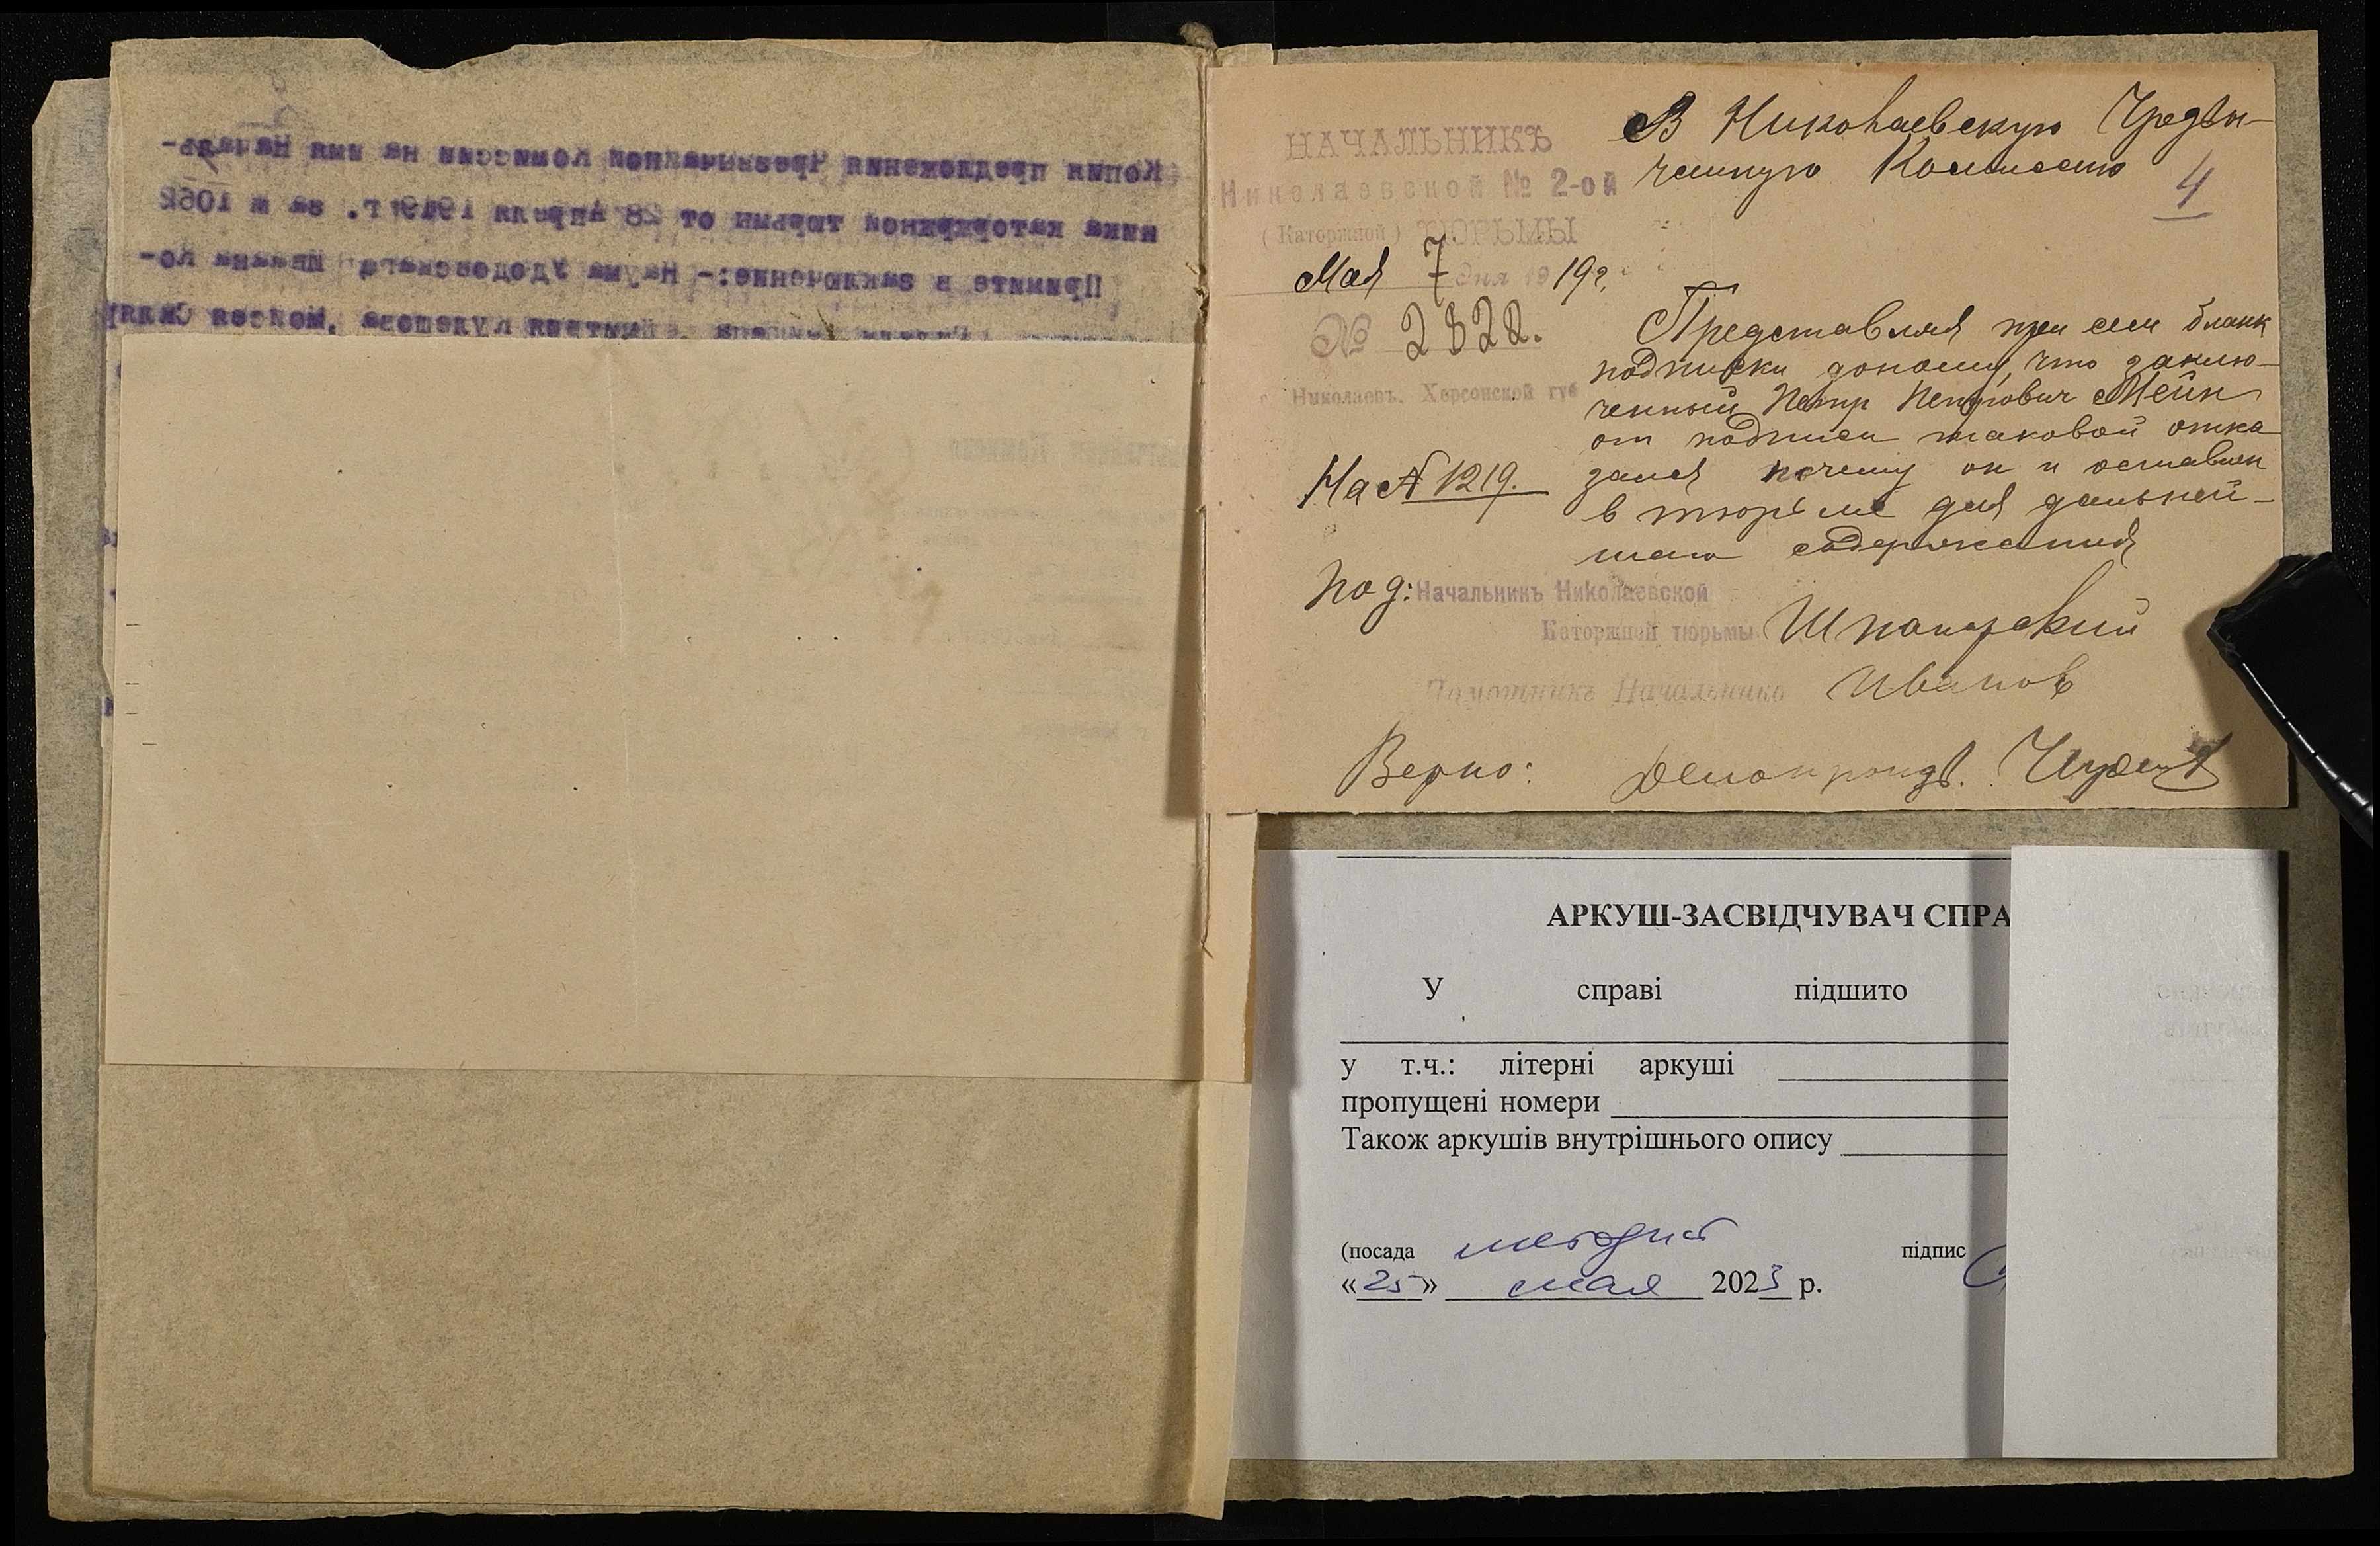 Копия предложения Чрезвычайной Комиссии на имя Началь-
ника каторжной тюрьмы от 28 апреля 1919 г. за № 1062
Примите в заключение:- Наума Удодовскаго,
НАЧАЛЬНИКЪ
Николаевской № 2-ой
(Каторжной) ТЮРЬМЫ
Мая 7 дня 1919 г.
№ 2822.
Николаевъ, Херсонской губ
На № 1219.
4
В Николаевскую Чрезвы-
чайную Комиссию
Представляя при сем бланк
подписки доношу, что заклю-
ченный Петр Петрович Мейн
от подписи таковой отка
зался почему он и оставлен
в тюрьме для дальней-
шаго содержания
Под: Начальникъ Николаевской
Каторжной тюрьмы
Помощникъ Начальника Иванов
Верно:
АРКУШ-ЗАСВІДЧУВАЧ СПРА
У справі підшито
у т.ч.: літерні аркуші
пропущені номери
Також аркушів внутрішнього опису
(посада методист підпис
«25» мая 2023 р.